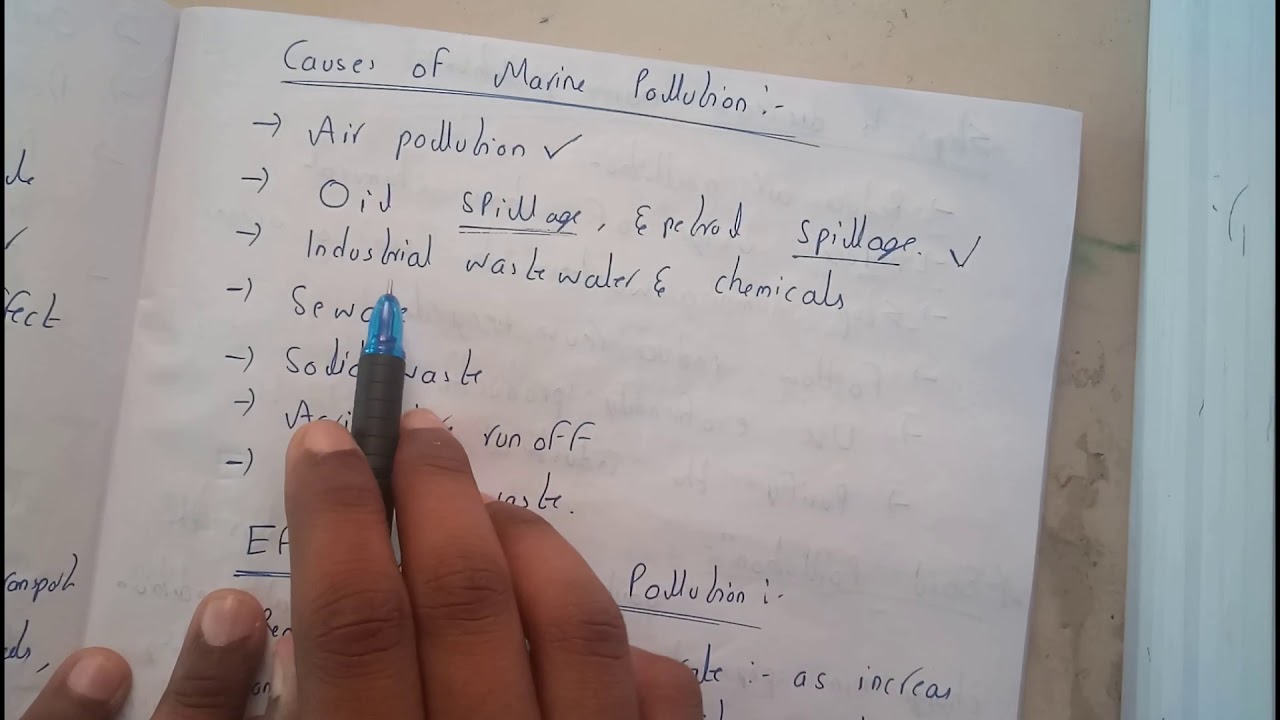 Causes of Marine Pollution :-
→ Air pollution ✓
→ Oil spillage, & petrol spillage. ✓
→ Industrial waste water & chemicals
→ Sewage
→ Solid waste
→ run off
→ waste.
Pollution :-
:- as increas
fect